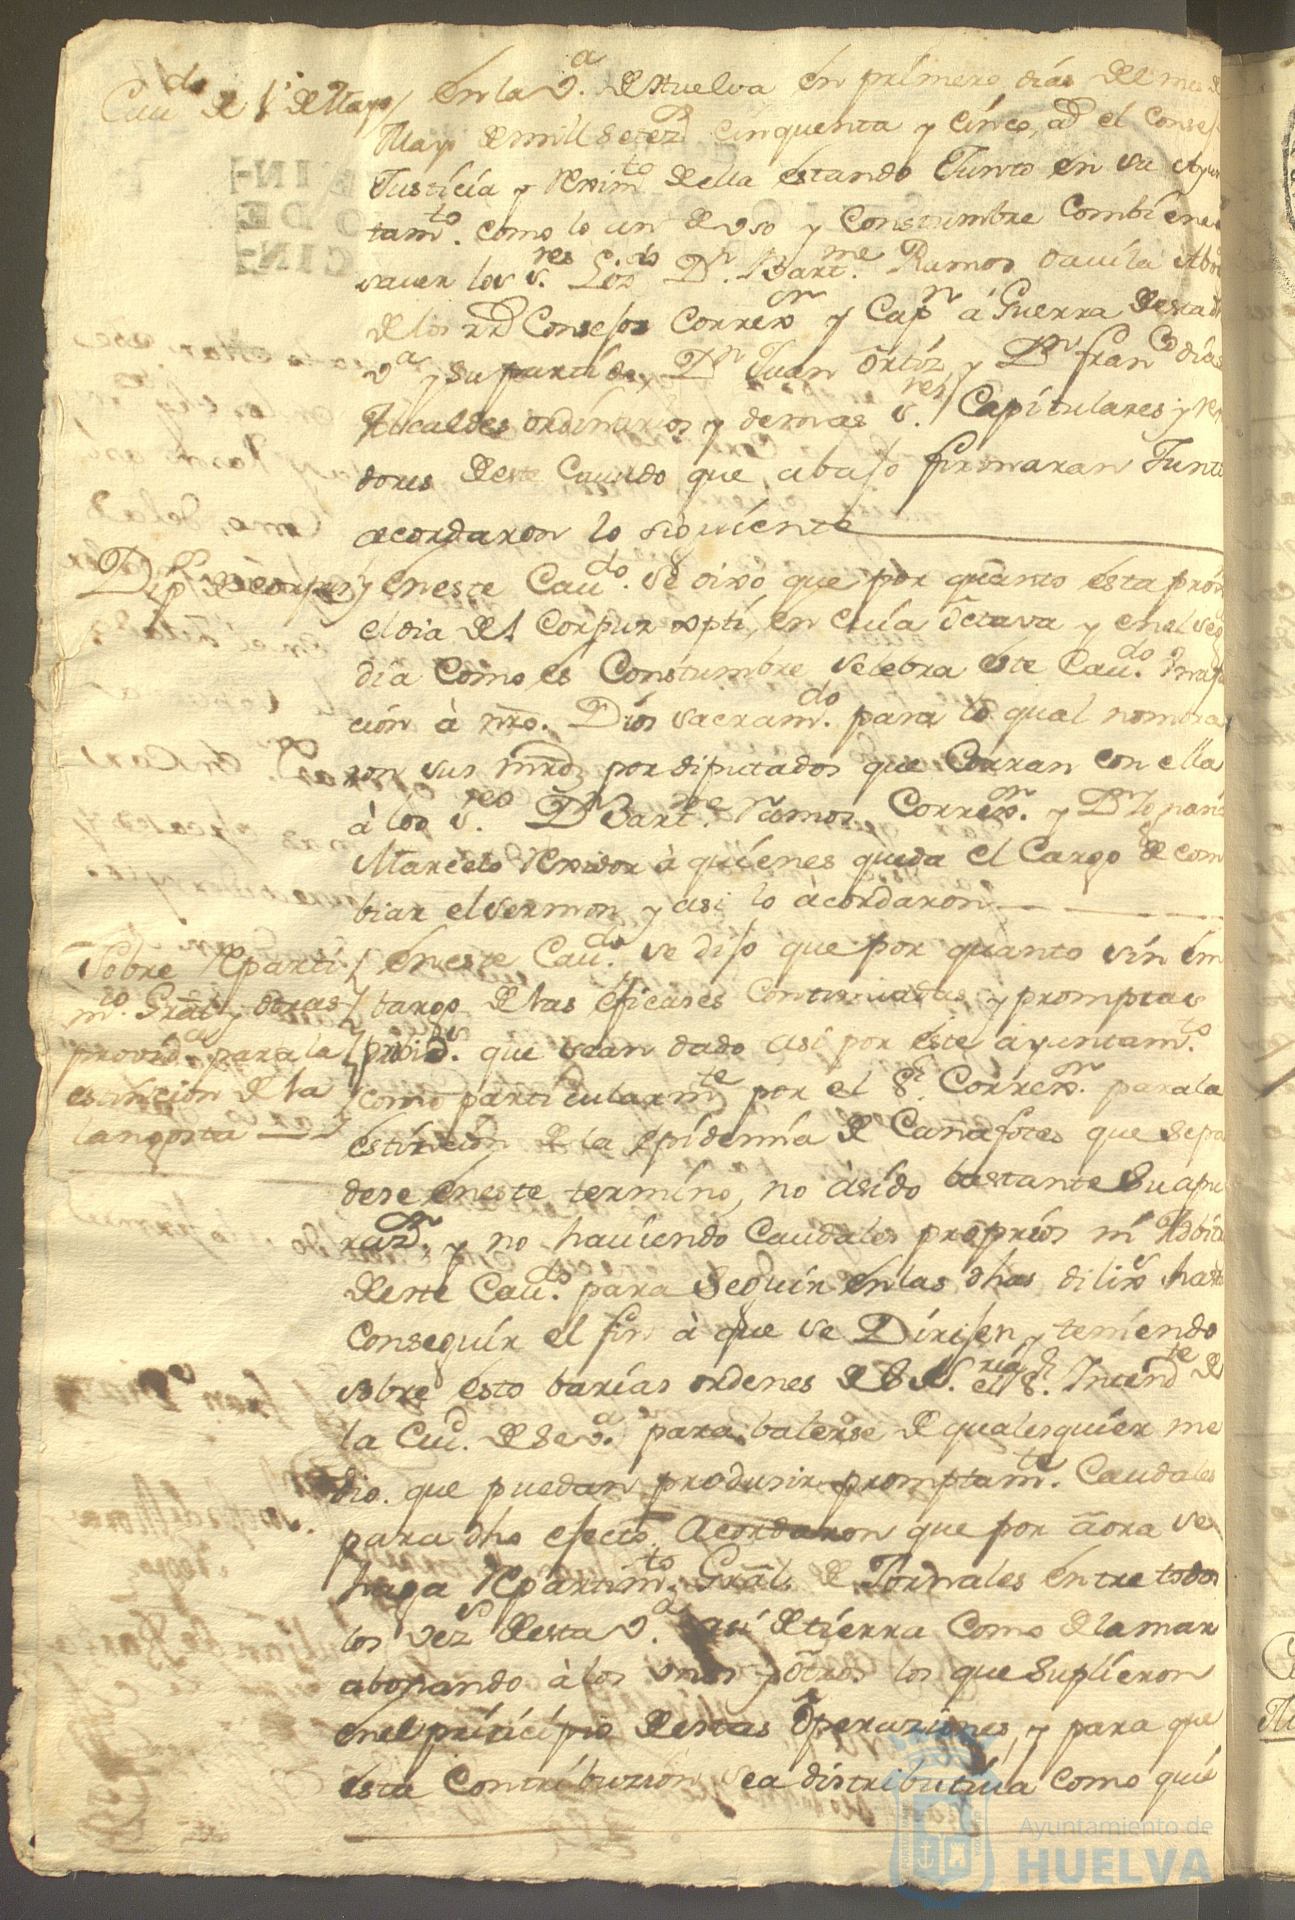 Cavdo de 1º de Mayo / En la Va. de Huelva en primero dias del mes de
Mayo de mill setezs. cinquenta y cinco, as el Consejo
Justicia y Reximto. della estando Junto en su Ayun
tamto. como lo an de uso y Constumbre Combiene a
saver los Sres. Lizdo Dn. Bartme. Ramos Davila Abdo
de los Rs Consejos Correxor y Capn a Guerra desta d
Va. y su partido, Dn Juan Ortiz y Dn Franco dias
Alcaldes ordinarios y demas Sres. Capitulares y Rexi
dores deste Cavildo que abajo firmaran Junto
acordaron lo siguiente
Dipon. de corpus / en este Cavdo. se dixo que por quanto esta proxo
el dia del Corpus xpti, en cuia octava y en el segdo
dia como es Constumbre selebra este Cavdo.
cion à nro. Dios sacramdo. para lo qual nombra
ron sus mrds por diputados que Corran con ella
à los Sres. Dn Bartme. Ramos Correxor. y Dn Ignacio
Marcelo Rexidor à quienes queda el Cargo de com
biar el sermon y asi lo acordaron
Sobre Reparti
mto. Gral y otras
providas. para la
estincion de la
langosta
en este Cavdo. se dijo que por quanto sin em
bargo de las eficases continuadas y promptas
provids. que sean dado asi por este ayuntamto.
como particularmte por el Sr. Correxor. para la
estincion de la epidemia de Canafotes que se pa
dese en este termino, no à sido bastante su apu
razon. y no haviendo Caudales proprios ni Adbitr
deste Cavdo. para seguir en las dhas dilixs hasta
Conseguir el fin à que se Dirijen y teniendo
sobre esto barias ordenes de S. Sria. el Sr. Intendte de
la Ciud. de Seva. para balerse de qualesquier me
dio que puedan produsir promptamte. Caudales
para dho efecto. Acordaron que por aora se
haga Repartimto. Gral. de Jornales entre todos
los vezs desta Va. asi de tierra como de la mar
abonando à los unos y otros los que suplieron
en el principio destas operaziones, y para que
esta Contribuzion sea distributiva como qui
Ayuntamiento de
HUELVA